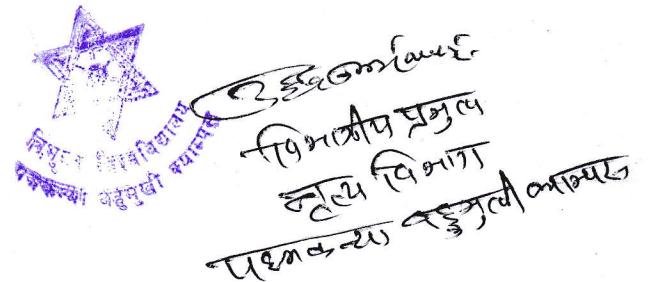 त्रिभुवन विश्वविद्यालय
पद्मकन्या बहुमुखी क्याम्पस
विभागीय प्रमुख
नृत्य विभाग
पद्मकन्या बहुमुखी क्याम्पस